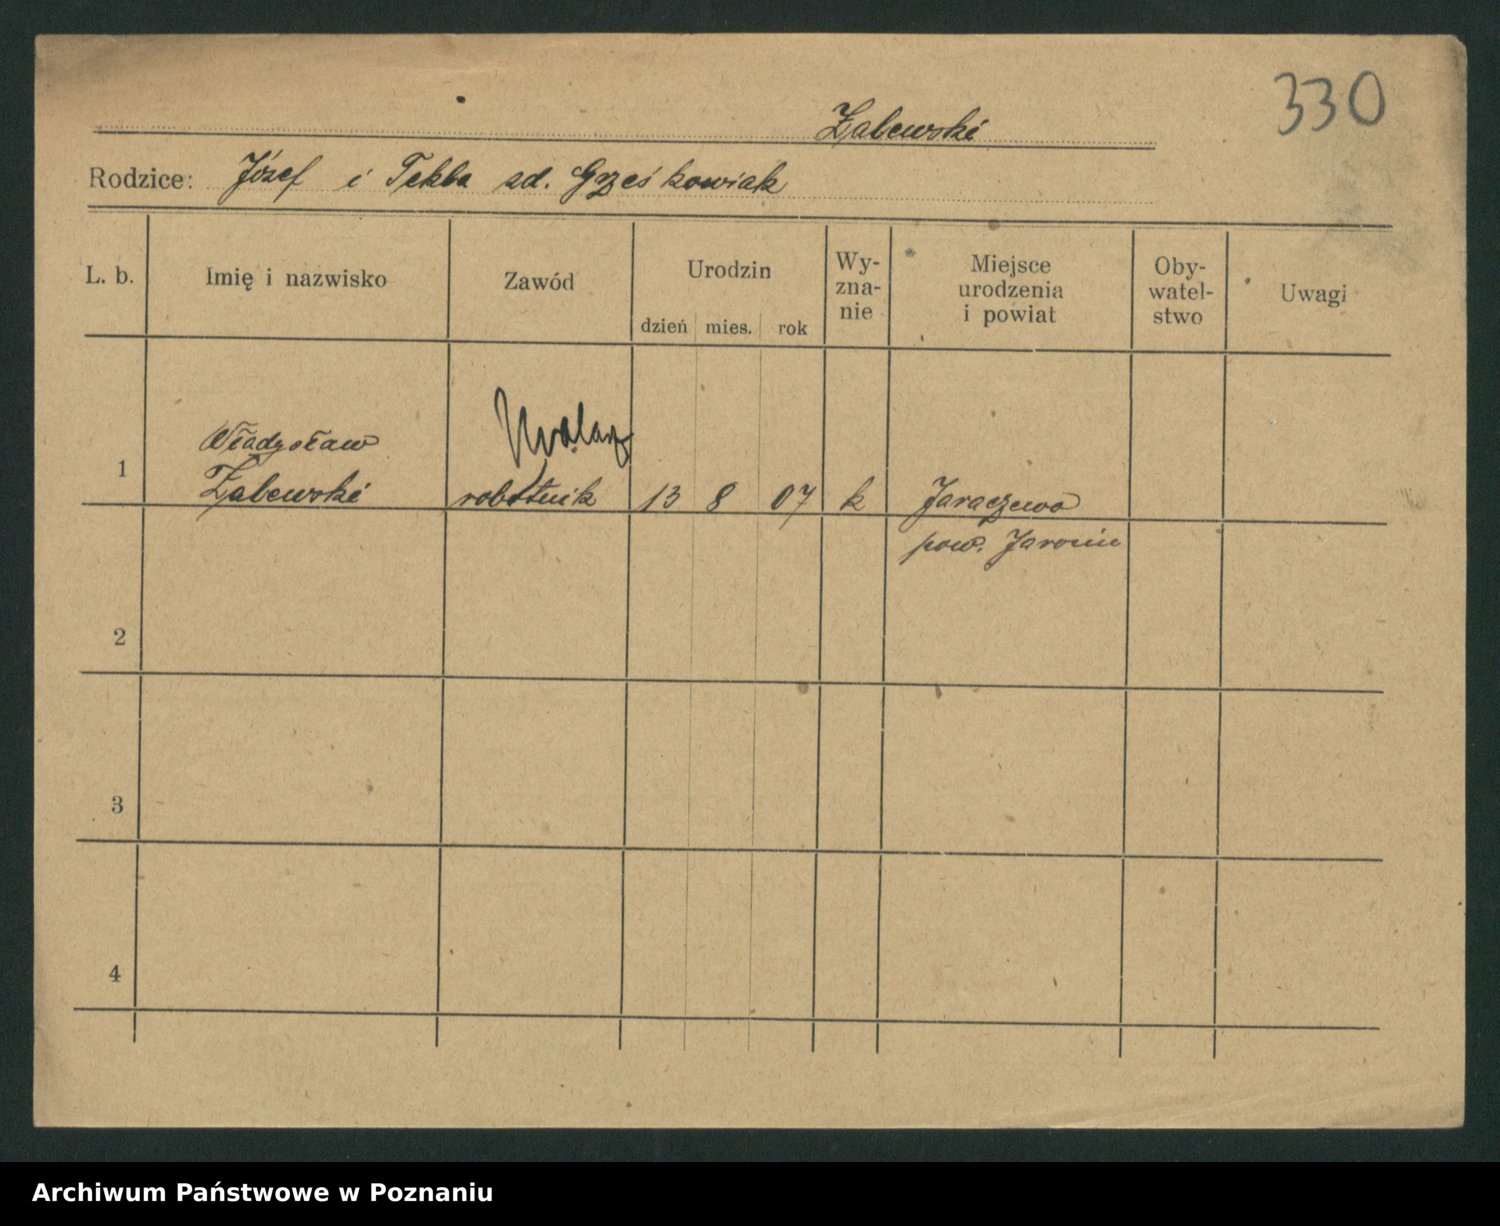 330
Żalewski
Rodzice: Józef i Tekla zd. Grześkowiak
L. b. Imię i nazwisko Zawód Urodzin dzień mies. rok Wy-zna-nie Miejsce urodzenia i powiat Oby-watel-stwo Uwagi
Władysław
1 Żalewski robotnik 13 8 07 k Jaraczewo
pow. Jarocin
2
3
4
Archiwum Państwowe w Poznaniu